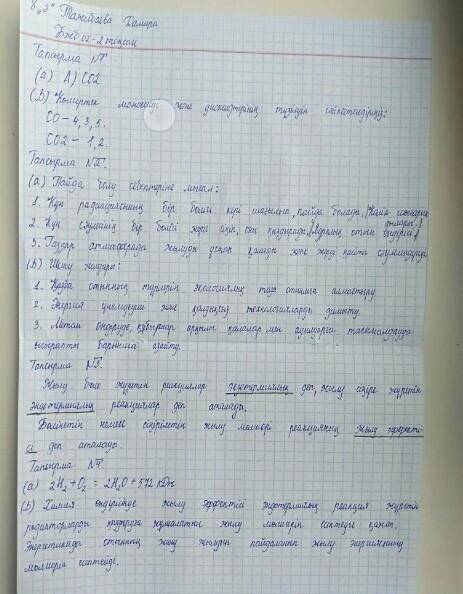 8 "З" Танатбаева Дильнура
БЖБ 02 - 2 тоқсан
Тапсырма №1.
(a) A) CO2
(b) Көміртек монооксиді және диоксидтерінің түзілуін сәйкестендіріңіз:
CO - 4, 3, 5.
CO2 - 1, 2.
Тапсырма №2.
(a) Пайда болу себептеріне мысал:
1. Күн радиациясының бір бөлігі кері шағылып, пайда болады.
2. Күн сәулесінің бір бөлігі жерге сіңіп, оны қыздырады.
3. Газдар атмосферада жылуды ұстап қалады және жерді қайта сәулелендіреді
(b) Шешу жолдары:
1. Қазба отынның түрлерін экологиялық таза отынға алмастыру
2. Энергия үнемдегіш және қалдықсыз технологияларды дамыту.
3. Метан өндіруде, құбырлар арқылы қалалар мен ауылдарға тасымалдауда
ысырапты барынша азайту.
Тапсырма №3.
Жылу бөле жүретін реакциялар экзотермиялық деп, жылу сіңіре жүретін
эндотермиялық реакциялар деп аталады.
Бөлінетін немесе сіңірілетін жылу мөлшері реакцияның жылу эффекті-
сі деп аталады.
Тапсырма №4.
(a) 2H2 + O2 = 2H2O + 572 кДж
(b) Химия өндірісінде жылу эффектісі эндотермиялық реакция жүретін
реакторларды қыздыруға жұмсалатын жылу мөлшерін есептеуге қажет.
Энергетикада отынның жану жылуын пайдаланып жылу энергиясының
мөлшерін есептейді.